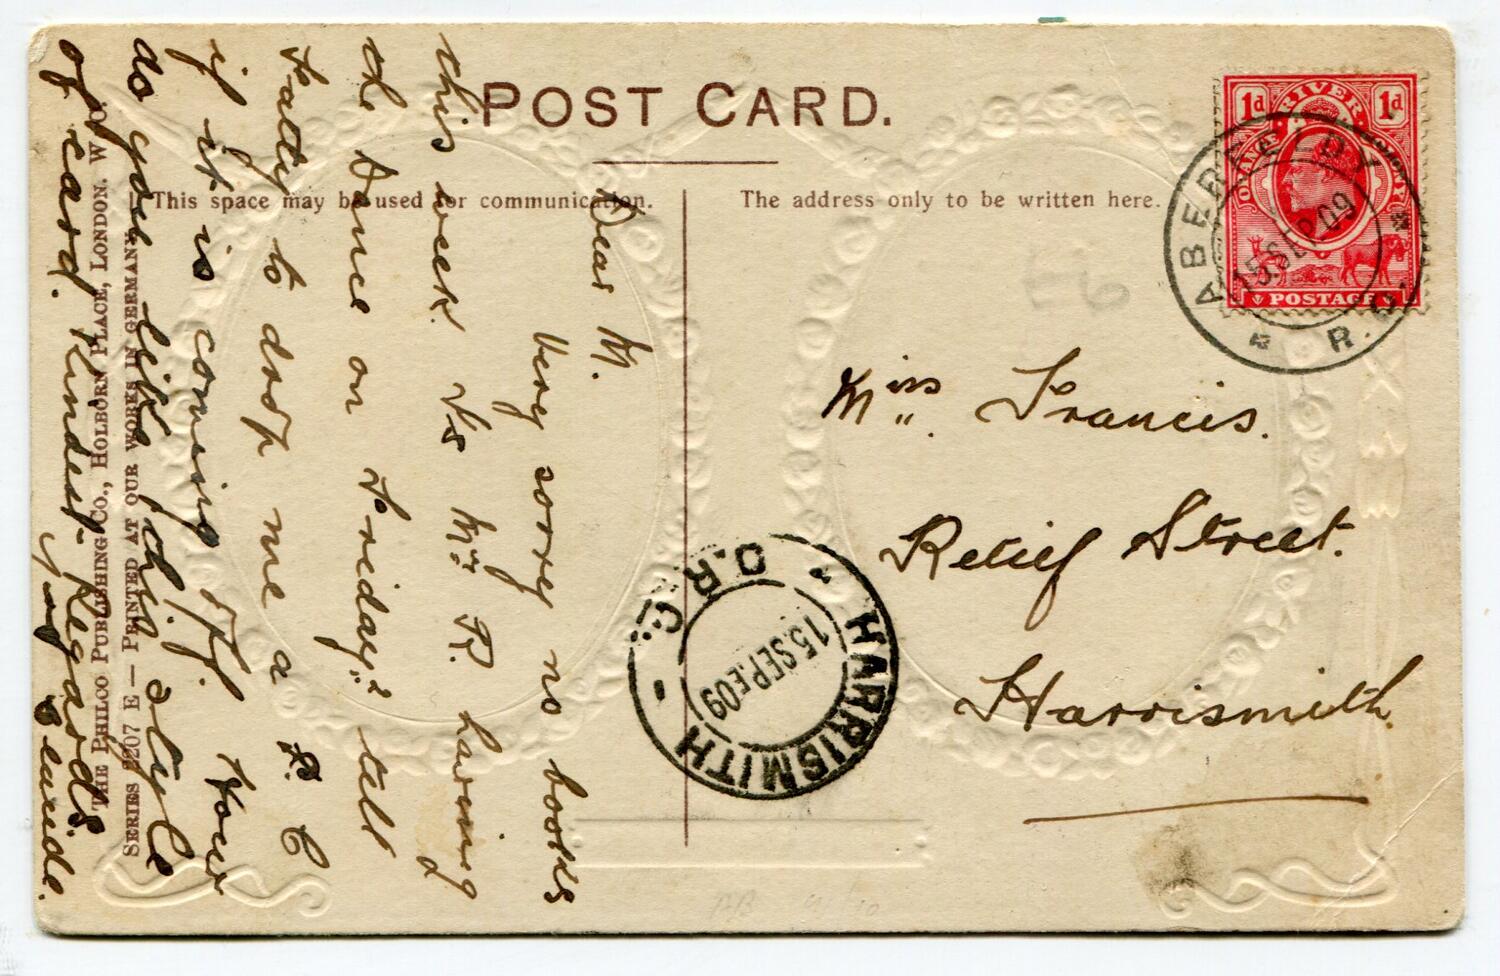 POST CARD.
This space may be used for communication.
The address only to be written here.
1d 1d
ORANGE RIVER COLONY
POSTAGE
ABERFELDY
15 SEP 09
R.O.
Miss Francis.
Retief Street.
Harrismith.
HARRISMITH
O.R.C.
15.SEP.E09
Dear M.
Very sorry no books
this week. Is Mrs R. having
the Dance on Friday? tell
Fatty to drop me a P. C
if it is coming off. How
do you like this style
of card. Kindest Regards
THE PHILCO PUBLISHING CO., HOLBORN PLACE, LONDON. W.C.
SERIES 2207 E — PRINTED AT OUR WORKS IN GERMANY